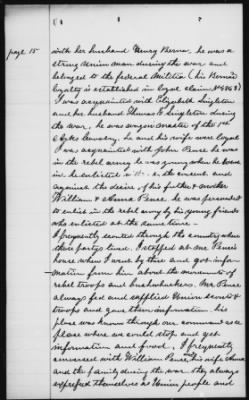 page 15
with her husband Henry Berna, he was a
strong Union man during the war and
belonged to the federal Militia (his Berna's
loyalty is established in loyal claim No 8868)
I was acquainted with Elizabeth Singleton
and her husband Thomas B Singleton during
the war, he was wagon master of the 1st
Cavalry, he and his wife were loyal
I was acquainted with John Pence he was
in the rebel army he was young when he went
in he enlisted in the consent and
against the desire of his father & mother
William & Anna Pence he was persuaded
to enlist in the rebel army by his young friends
who enlisted at the same time.
I frequently scouted through the country where
these partys lived. I stopped at one Pence's
house when I went by there and got infor-
mation from him about the movements of
rebel troops and bushwhackers. Mr Pence
always fed and supplied Union scouts &
troops and gave them information. his
place was known through our command as a
place where we could stop and get
information and food. I frequently
conversed with William Pence, his wife Anna
and the family during the war. they always
expressed themselves as Union people and